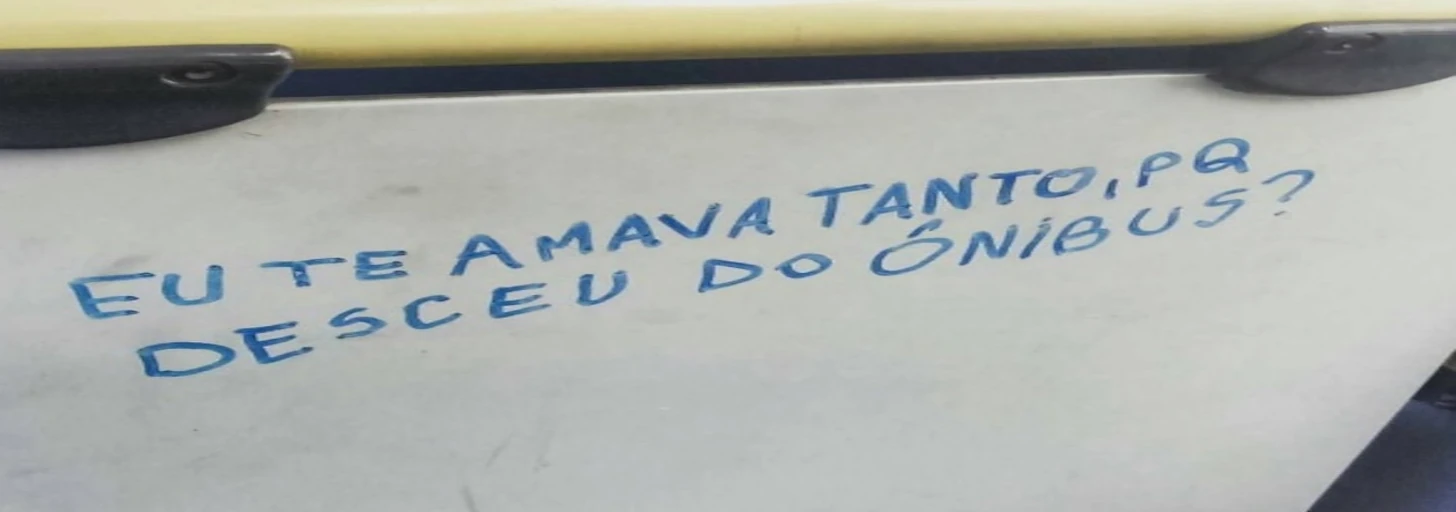 EU TE AMAVA TANTO, PQ
DESCEU DO ÔNIBUS?